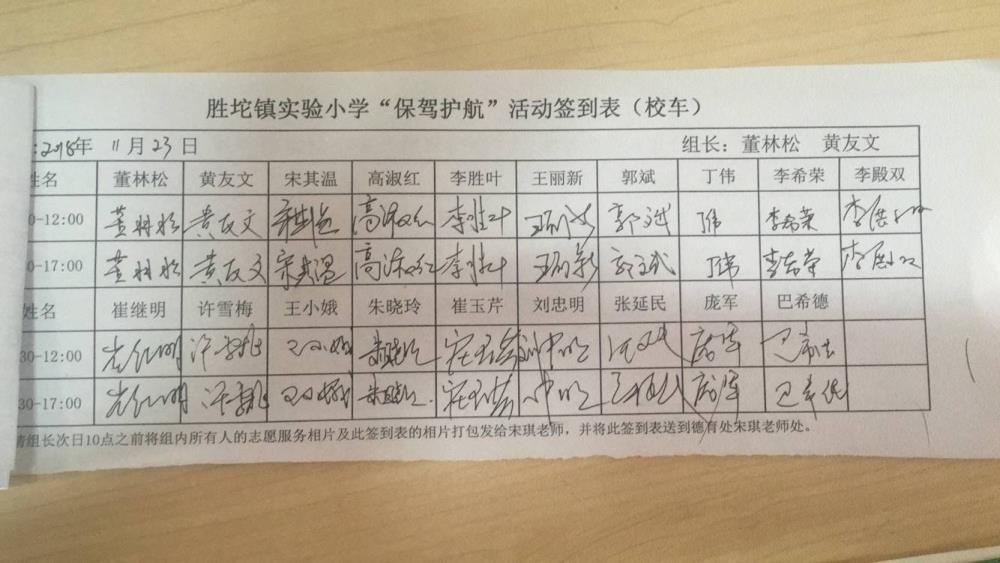 胜坨镇实验小学“保驾护航”活动签到表（校车）
:2018年 11月23日 组长：董林松 黄友文
姓名 董林松 黄友文 宋其温 高淑红 李胜叶 王丽新 郭斌 丁伟 李希荣 李殿双
0-12:00 董林松 黄友文 宋其温 高淑红 李胜叶 王丽新 郭斌 丁伟 李希荣 李殿双
0-17:00 董林松 黄友文 宋其温 高淑红 李胜叶 王丽新 郭斌 丁伟 李希荣 李殿双
姓名 崔继明 许雪梅 王小娥 朱晓玲 崔玉芹 刘忠明 张延民 庞军 巴希德
30-12:00 崔红明 许雪梅 王小娥 朱晓玲 崔玉芹 刘中明 庞军 巴希德
30-17:00 崔红明 许雪梅 王小娥 朱晓玲 崔玉芹 中明 庞军 巴希德
请组长次日10点之前将组内所有人的志愿服务相片及此签到表的相片打包发给宋琪老师，并将此签到表送到德育处宋琪老师处。